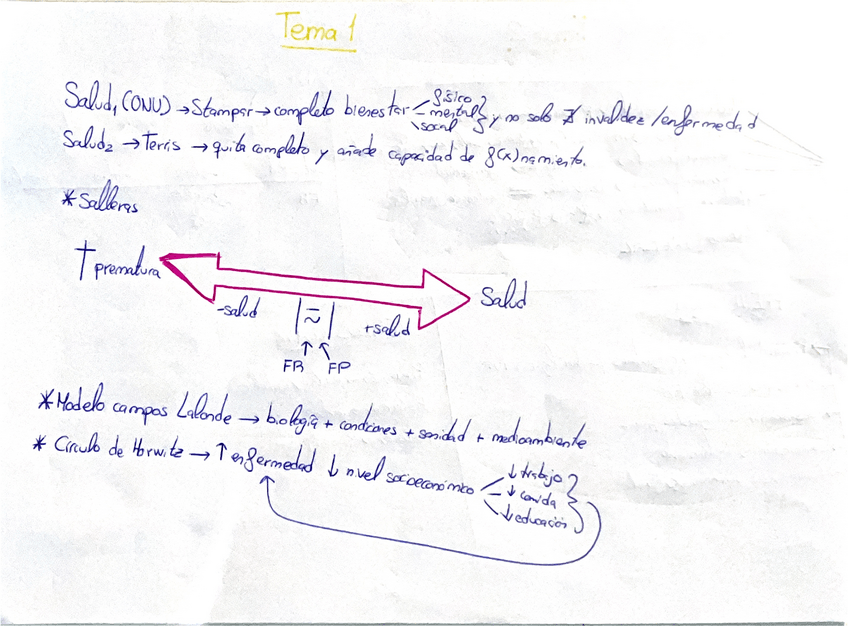 Tema 1
Salud₁ (ONU) → Stampar → completo bienestar físico mental social y no solo ∄ invalidez / enfermedad
Salud₂ → Terris → quita completo y añade capacidad de f(x)namiento.
* Salleras
† prematura
Salud
-salud
+salud
FR FP
* Modelo campos Lalonde → biología + condiciones + sanidad + medioambiente
* Círculo de Horwitz → ↑ enfermedad ↓ nivel socioeconómico
↓ trabajo
↓ comida
↓ educación